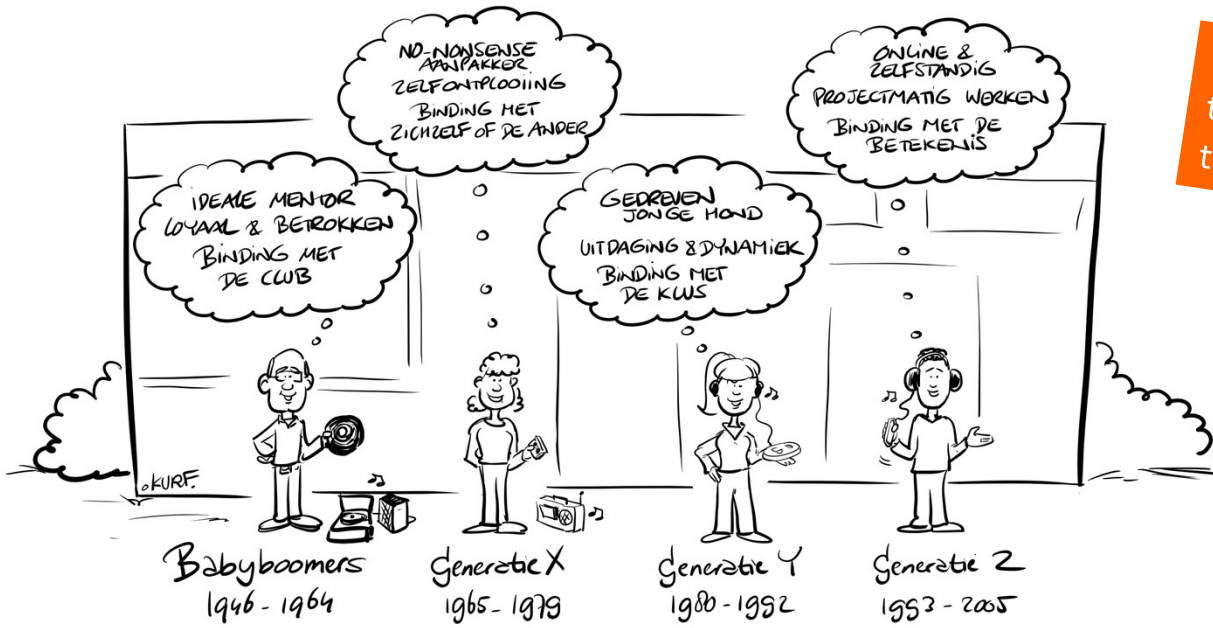 IDEALE MENTOR
LOYAAL & BETROKKEN
BINDING MET
DE CLUB
NO-NONSENSE
AANPAKKER
ZELFONTPLOOIING
BINDING MET
ZICHZELF OF DE ANDER
GEDREVEN
JONGE HOND
UITDAGING & DYNAMIEK
BINDING MET
DE KLUS
ONLINE &
ZELFSTANDIG
PROJECTMATIG WERKEN
BINDING MET DE
BETEKENIS
.KURF.
Babyboomers
1946 - 1964
Generatie X
1965 - 1979
Generatie Y
1980 - 1992
Generatie Z
1993 - 2005
t
t